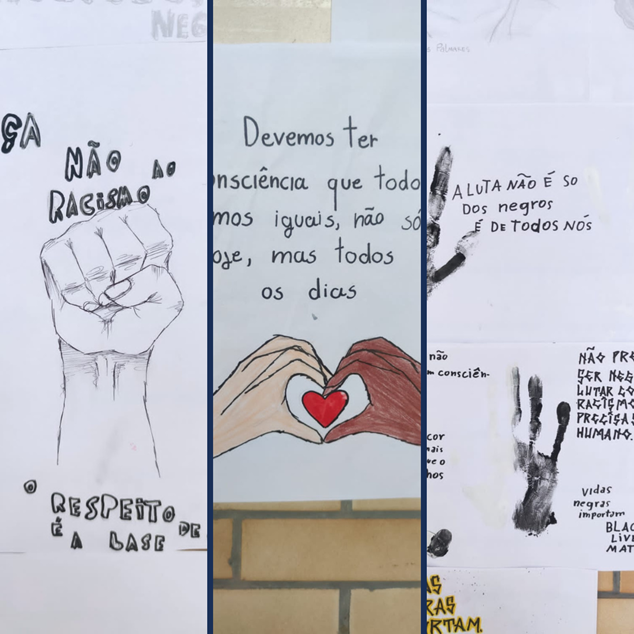 NEG
ÇA
NÃO AO
RACISMO
O RESPEITO DE
É A BASE
Devemos ter
onsciência que todo
mos iguais, não só
oje, mas todos
os dias
DE PALMARES
A LUTA NÃO É SO
DOS negros
É DE TODOS NÓS
não
m consciên-
cor
mais
re o
hos
NÃO PRE
SER NEG
LUTAR CO
RACISMO
PRECISA
HUMANO.
vidas
negras
importam
BLAC
LIV
MAT
AS
RAS
RTAM.